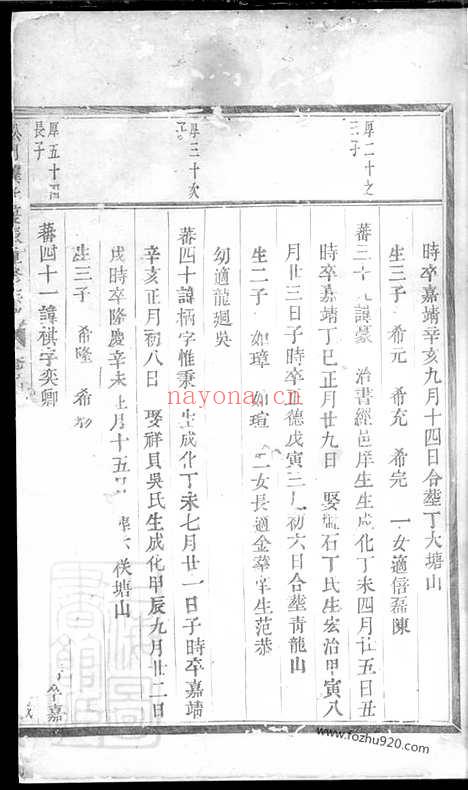 厚二十之
三子
厚三十次
子
厚五十四
長子
時卒嘉靖辛亥九月十四日合塟丁大塘山
生三子 希元 希充 希完 一女適儒磊陳
蕃三十九諱豪 治書經邑庠生生成化丁未四月廿五日丑
時卒嘉靖丁巳正月廿九日 娶 石丁氏生宏治甲寅八
月廿三日子時卒 德戊寅三月初六日合塟青龍山
生二子 如璋 如瑄 二女長適金華庠生范恭
幼適龍迴吳
蕃四十諱柄字惟秉 生成化丁未七月廿一日子時卒嘉靖
辛亥正月初八日 娶祥貝吳氏生成化甲辰九月廿二日
戌時卒隆慶辛未 月十五日 塘山
生三子 希隆 希
蕃四十一諱祺字奕卿
卒嘉
nayona.cn
www.fozhu920.com